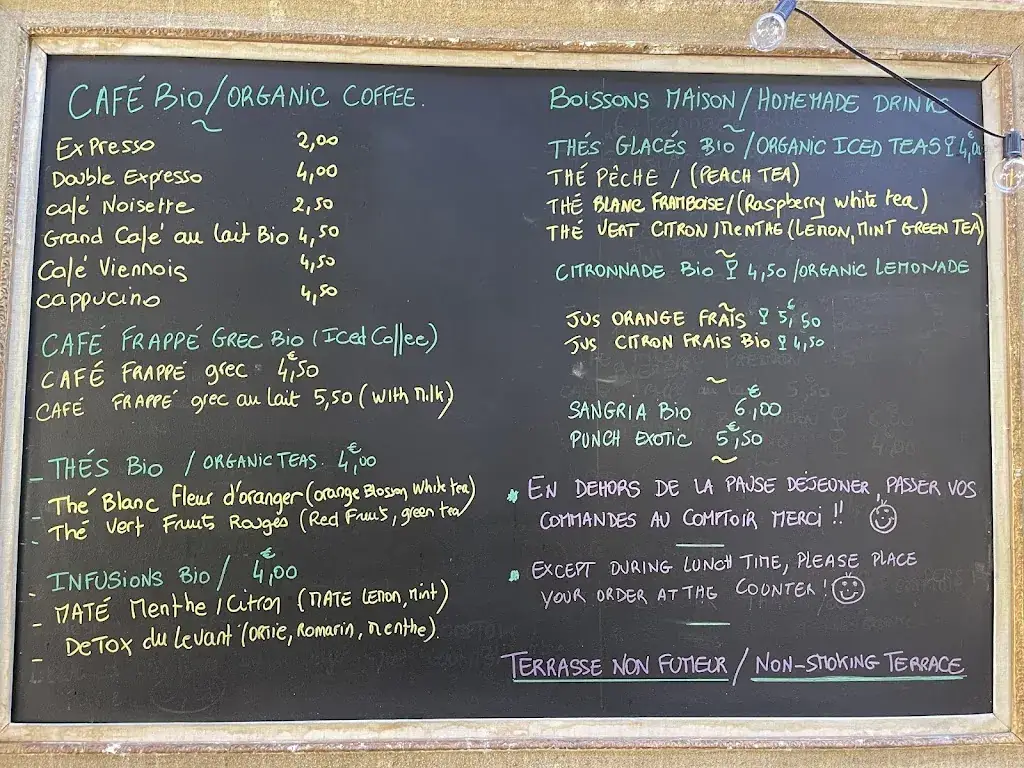 CAFÉ BIO/ORGANIC COFFEE.
Expresso 2,00
Double Expresso 4,00
café Noisette 2,50
Grand Café au lait Bio 4,50
Café Viennois 4,50
cappucino 4,50
CAFÉ FRAPPÉ GREC BIO (Iced Coffee)
CAFÉ FRAPPÉ grec 4,50€
CAFÉ FRAPPÉ grec au lait 5,50 (with Milk)
- THÉS BIO / ORGANIC TEAS. 4,00€
- Thé Blanc Fleur d'oranger (orange Blossom White tea)
- Thé Vert Fruits Rouges (Red Fruits, green tea)
- INFUSIONS BIO / 4,00€
- MATÉ Menthe / Citron (MATE Lemon, Mint)
- DETOX du Levant (ORTIE, Romarin, Menthe).
BOISSONS MAISON / HOMEMADE DRINKS
THÉS GLACÉS BIO / ORGANIC ICED TEAS 4,00€
THÉ PÊCHE / (PEACH TEA)
THÉ BLANC FRAMBOISE/(Raspberry white tea)
THÉ VERT CITRON / MENTHE (LEMON, MINT GREEN TEA)
CITRONNADE BIO 4,50 / ORGANIC LEMONADE
JUS ORANGE FRAIS 5,50€
JUS CITRON FRAIS BIO 4,50
SANGRIA BIO 6,00€
PUNCH EXOTIC 5,50€
* EN DEHORS DE LA PAUSE DÉJEUNER, PASSER VOS
COMMANDES AU COMPTOIR MERCI !!
* EXCEPT DURING LUNCH TIME, PLEASE PLACE
YOUR ORDER AT THE COUNTER !
TERRASSE NON FUMEUR / NON-SMOKING TERRACE